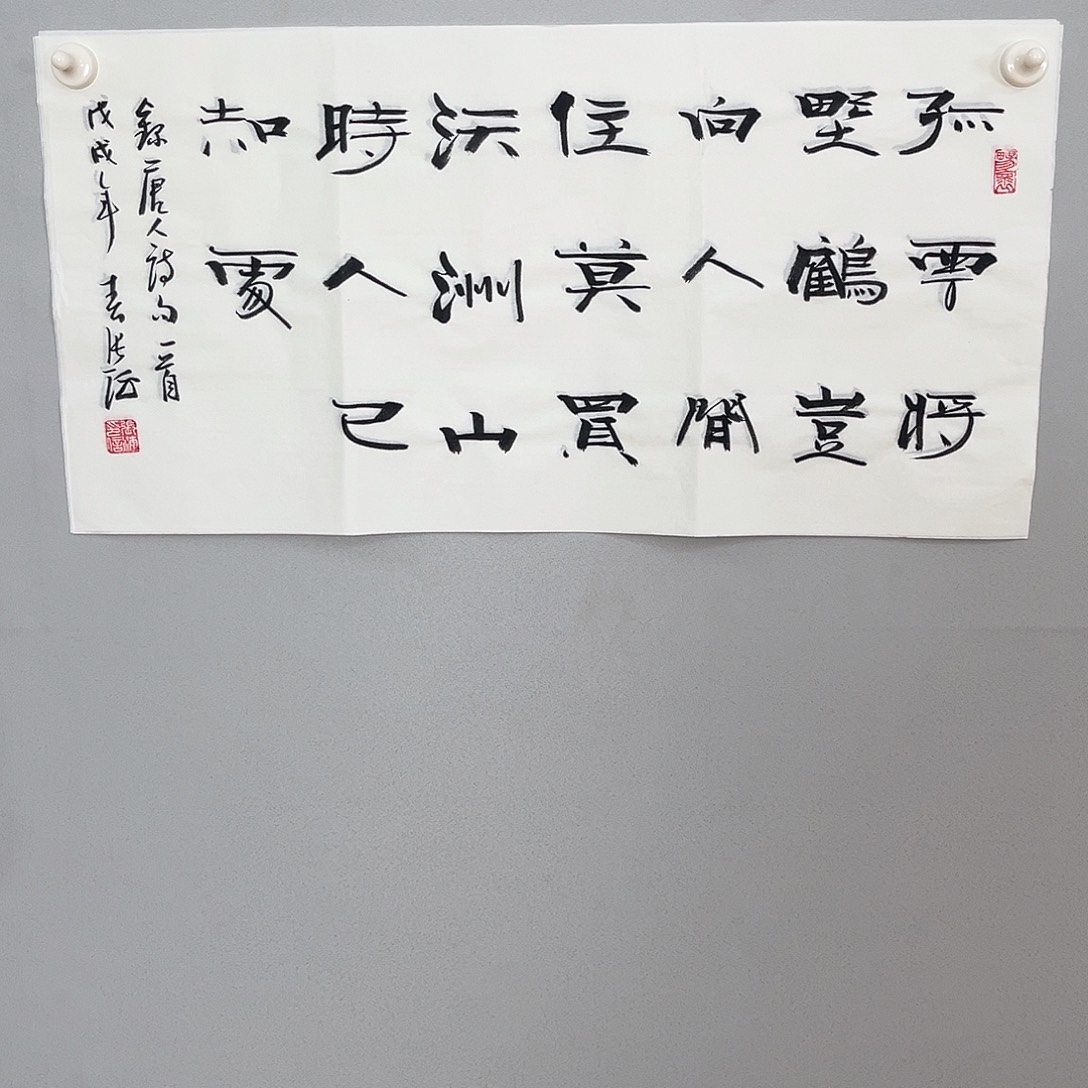 孤雲將
野鶴豈
向人間
住莫買
沃洲山
時人已
知處
錄唐人詩句一首
戊戌年春張